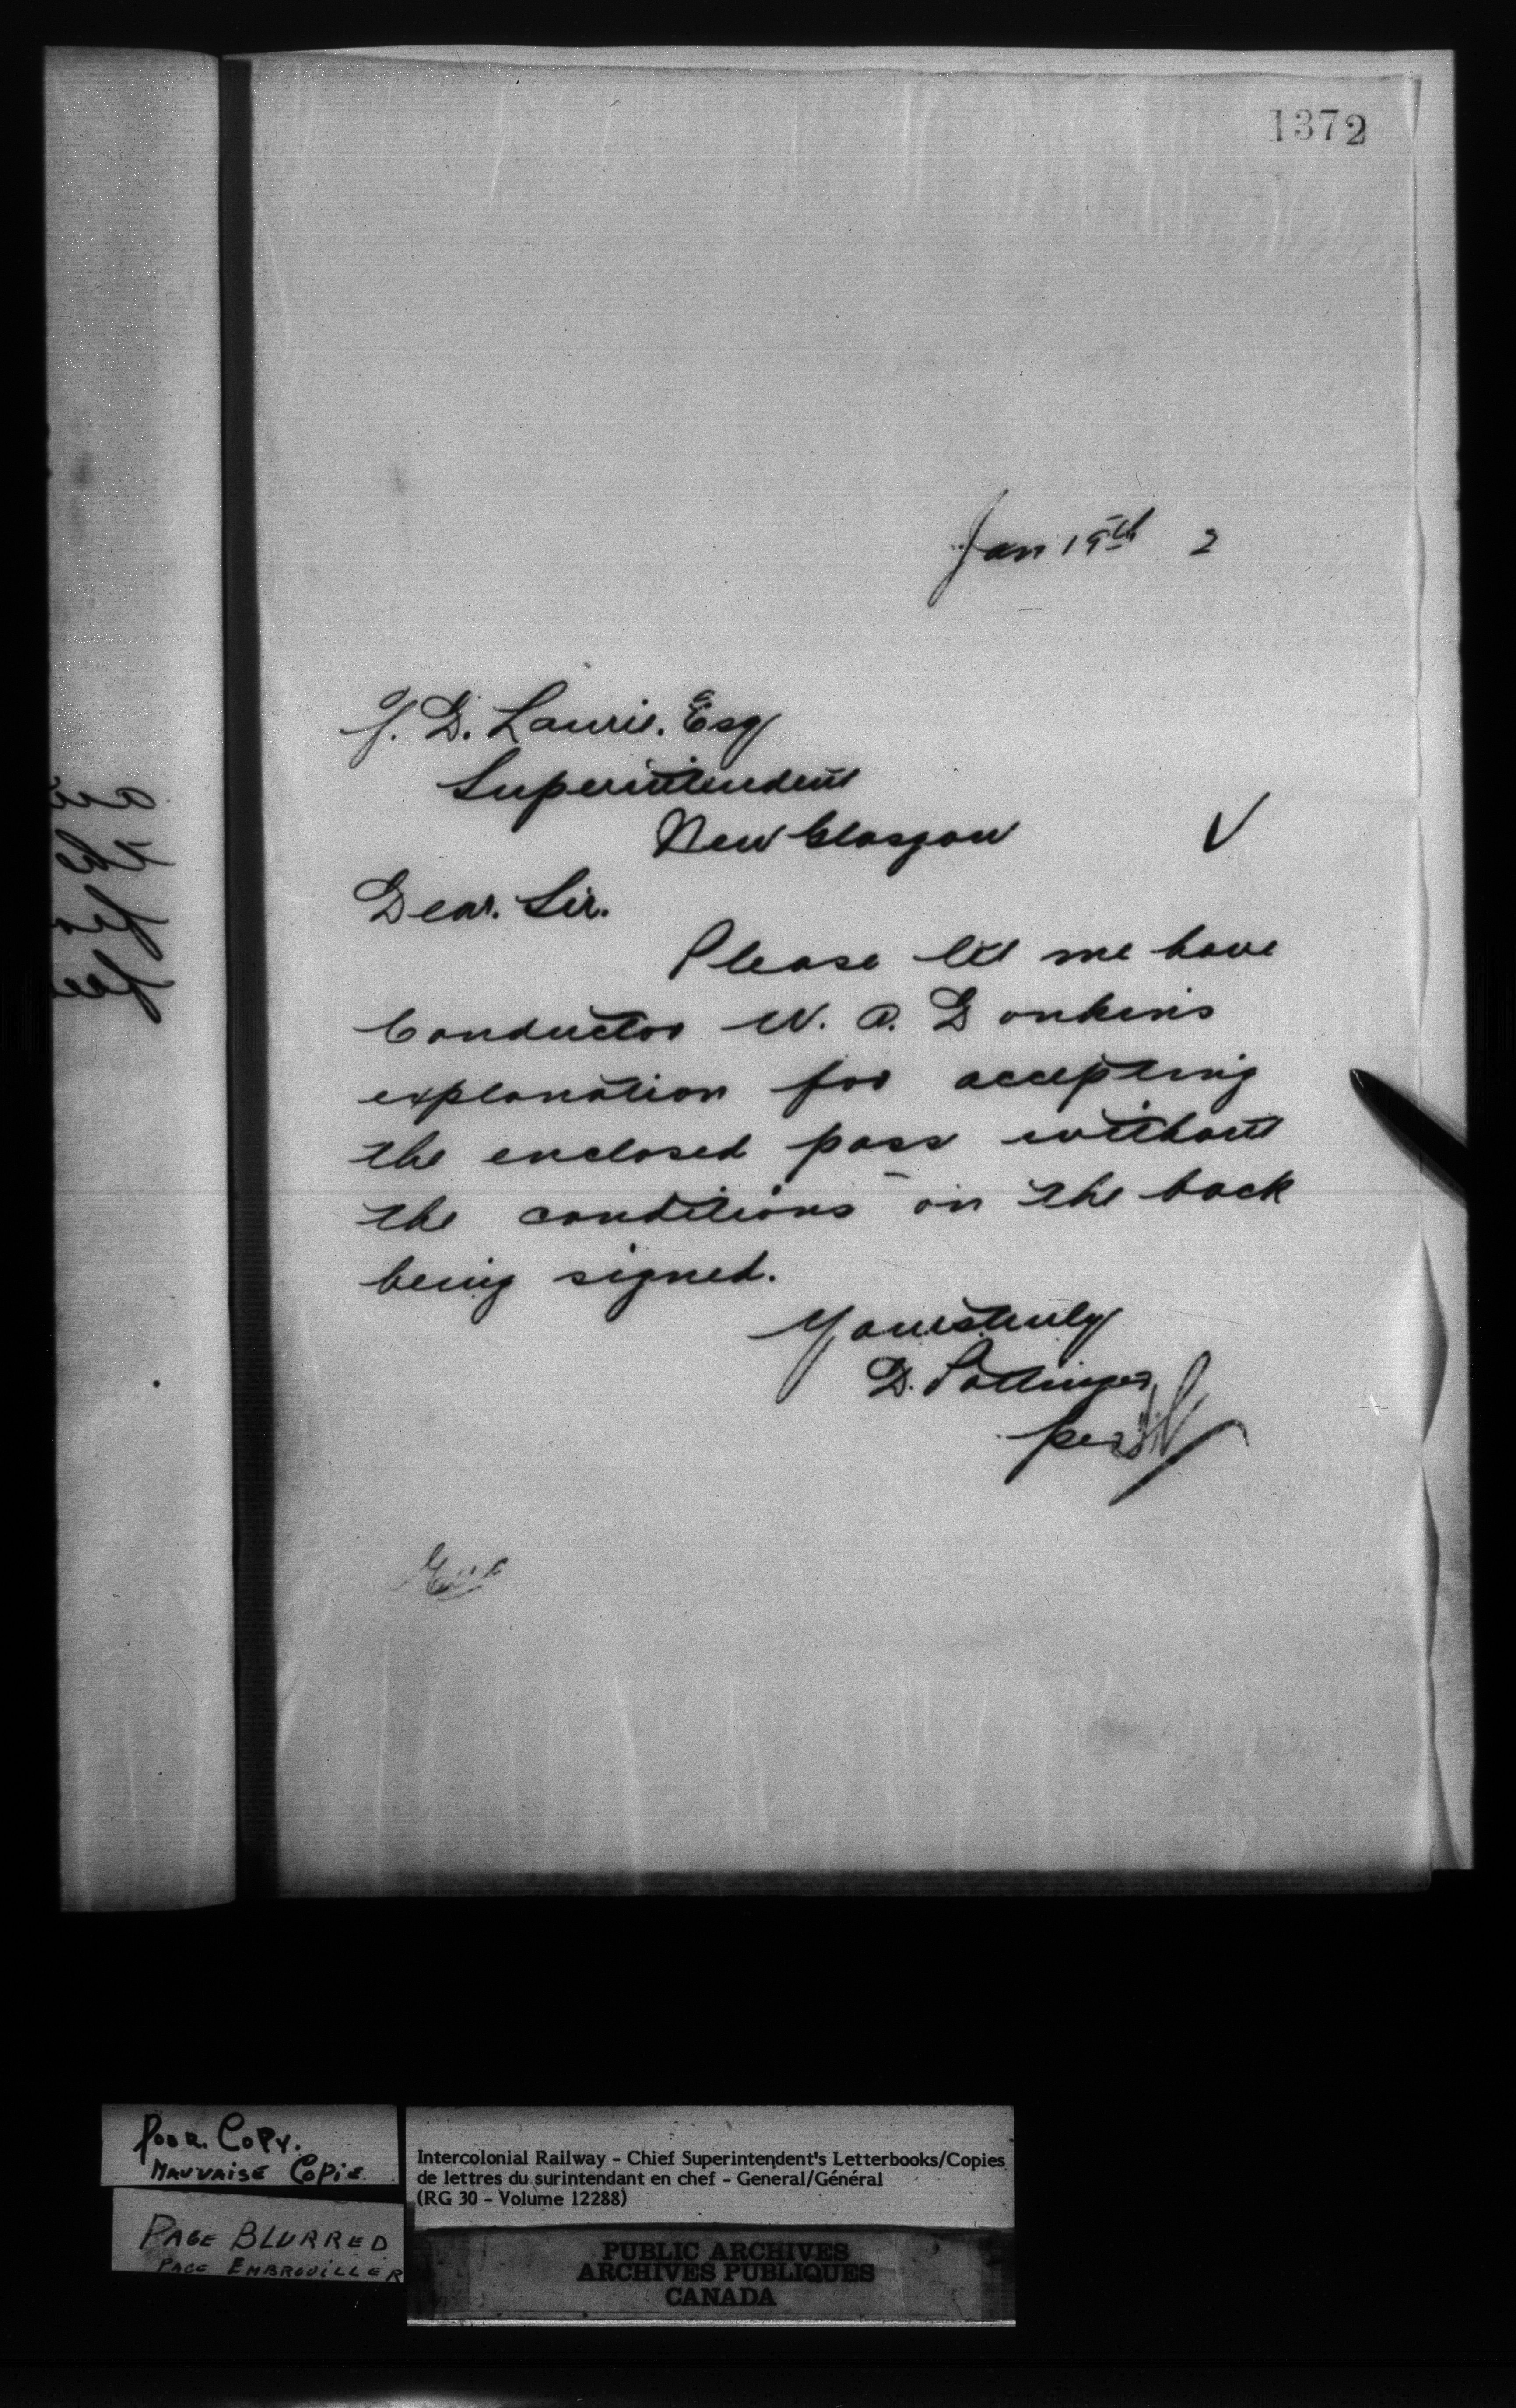 1372
Jan 19th 2
J. D. Laurie. Esq
Superintendent
New Glasgow
Dear. Sir.
Please let me have
Conductor W. A. Donkins
explanation for accepting
the enclosed pass without
the conditions on the back
being signed.
Yours truly
D. Pottinger
per
Poor. Copy.
Mauvaise Copie
Page Blurred
Page Embrouiller
Intercolonial Railway - Chief Superintendent's Letterbooks/Copies
de lettres du surintendant en chef - General/Général
(RG 30 - Volume 12288)
PUBLIC ARCHIVES
ARCHIVES PUBLIQUES
CANADA